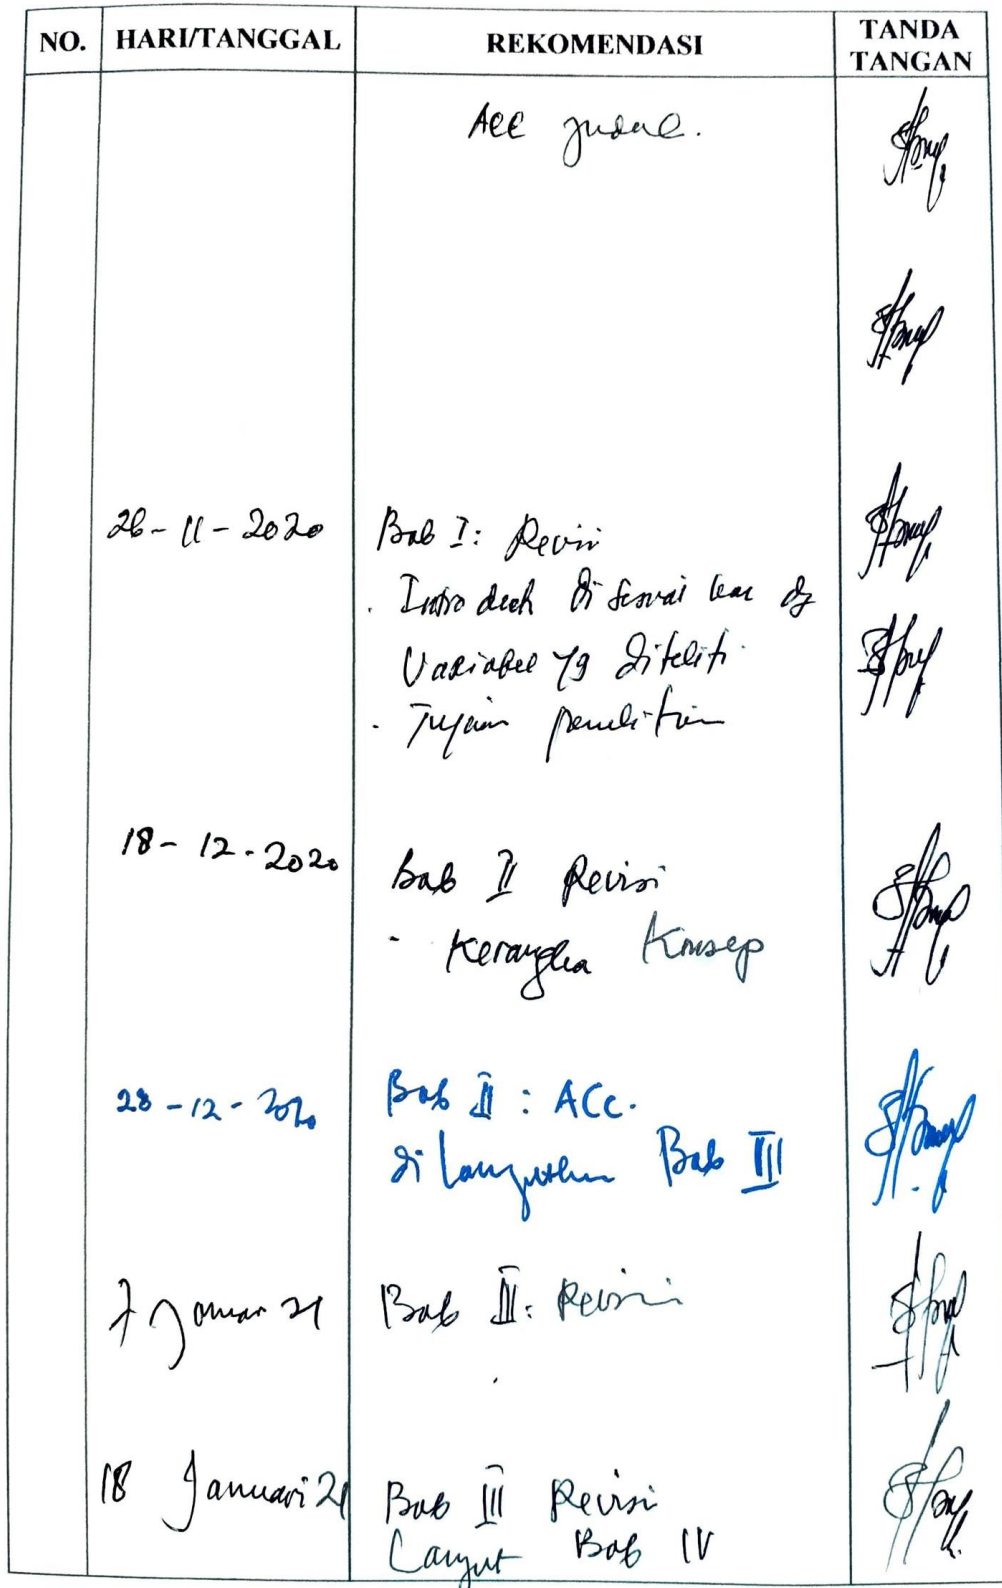 NO. HARI/TANGGAL REKOMENDASI TANDA TANGAN
Acc judul.
26-11-2020 Bab I: Revisi
. Introduch disesuaikan dg
Variabel yg diteliti
. Tujuan penelitian
18-12-2020 Bab II Revisi
- Kerangka Konsep
28-12-2020 Bab II : ACC.
dilanjutkan Bab III
7 Januari 21 Bab III: Revisi
18 Januari 21 Bab III Revisi
Lanjut Bab IV